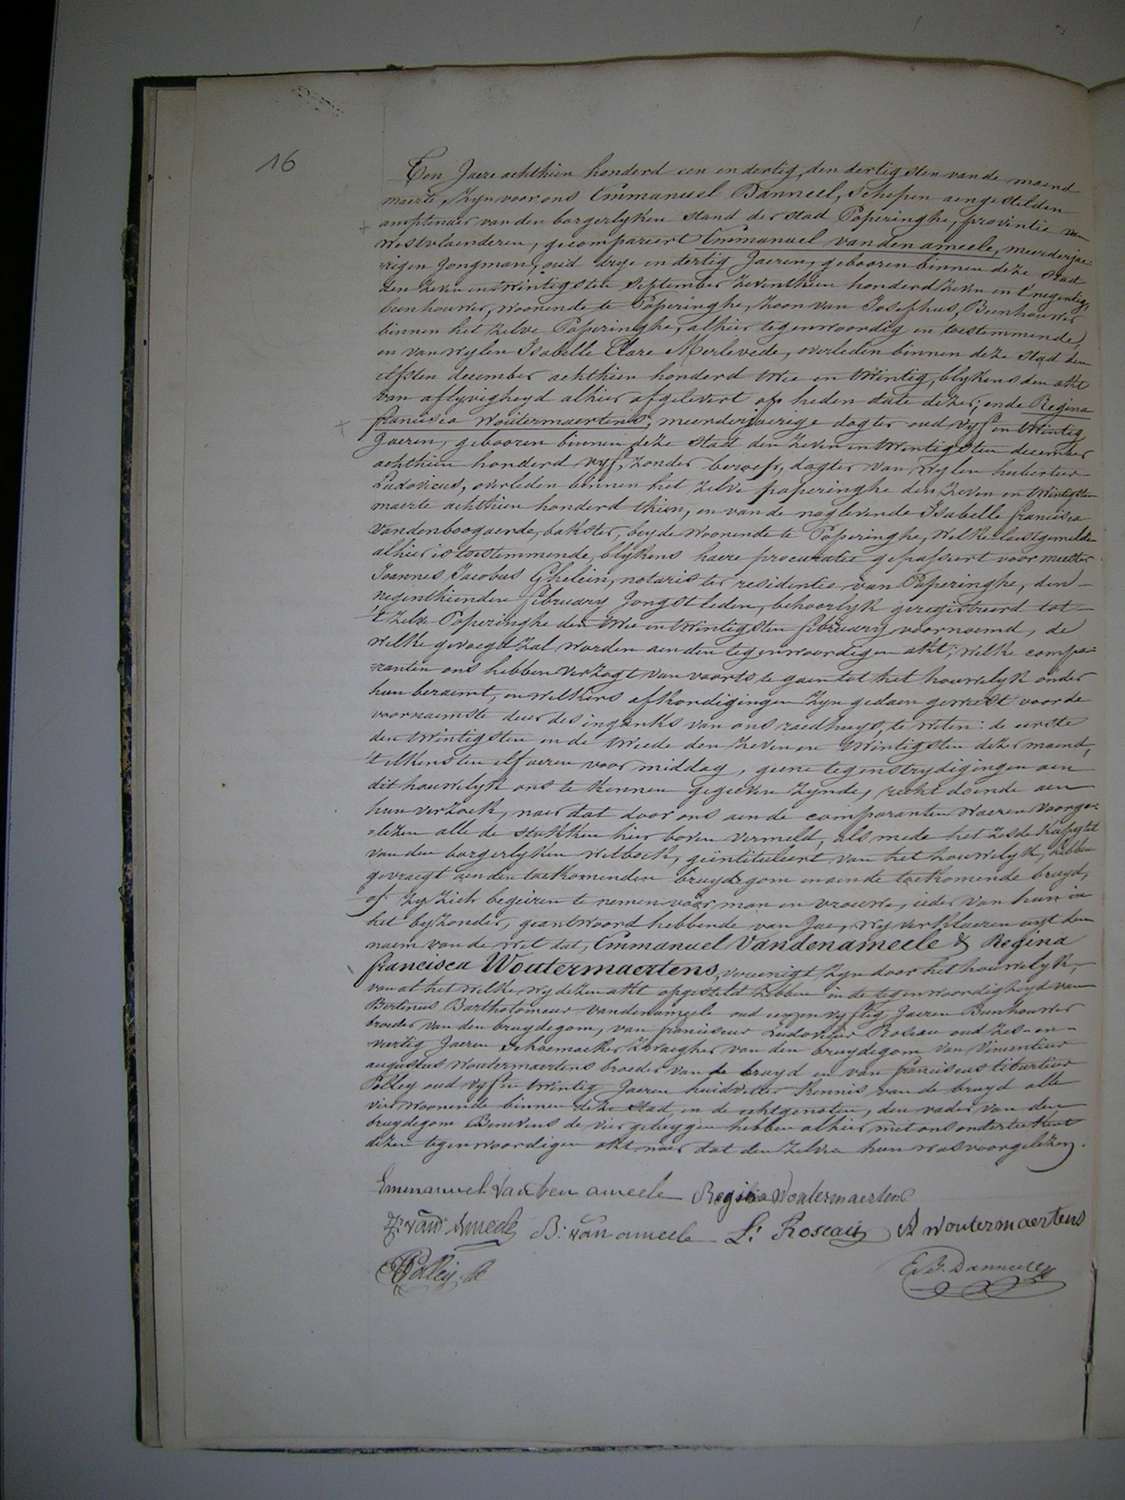 16
Ten Jaere achthien honderd een en dertig, den dertigsten van de maend
maerte, zyn voor ons Emmanuel Danneel, Schepen aengestelden
amptenaer van den borgerlyken stand der stad Poperinghe, provintie van
Westvlaenderen, gecompareert Emmanuel vanden ameele, meerderjae-
rigen Jongman, oud drye en dertig Jaeren, gebooren binnen deze stad
den zeven en twintigsten september zeventhien honderd zeven en t'negentig,
beenhouwer, woonende te Poperinghe, zoon van Josephus, Beenhouwer
binnen het zelve Poperinghe, alhier tegenwoordig en toestemmende,
en van wylen Isabelle Clare Merlevede, overleden binnen deze stad den
elfsten december achthien honderd twee en twintig, blykens den akt
van aflyvigheyd alhier afgelevert op heden date dezer; ende Regina
francisca Woutermaertens, meerderjaerige dogter oud vyf en twintig
Jaeren, gebooren binnen deze stad den zeven en twintigsten december
achthien honderd vyf, zonder beroep, dogter van wylen
Ludovicus, overleden binnen het zelve poperinghe den zeven en twintigsten
maerte achthien honderd thien, en van de naglevende Isabelle francisca
Vandenboogaerde, bakster, beyde woonende te Poperinghe, welke laestgemelde
alhier is toestemmende, blykens haere procuratie gepasseert voor meester
Joannes Jacobus Ghelein, notaris ter residentie van Poperinghe, den
negenthienden february Jongstleden, behoorlyk geregistreerd tot
't zelve Poperinghe den twee en twintigsten february voornoemd, de
welke gevoegd zal worden aen den tegenwoordigen akt; welke compa-
ranten ons hebben verzogt van voorts te gaen tot het houwelyk onder
hun beraemt, en welkers afkondigingen zyn gedaen geweest voor de
voornaemste deur des ingangks van ons raedhuys, te weten: de eerste
den twintigsten en de tweede den zeven en twintigsten dezer maend,
t'elkens ten elf ueren voormiddag, geene tegenstrydigingen aen
dit houwelyk ons te kennen gegeven zynde, recht doende aen
hun verzoek, naer dat door ons aen de comparanten waeren voorge-
lezen alle de stukken hier boven vermeld, als mede het zesde kapittel
van den borgerlyken wetboek, geïntituleert van het houwelyk, hebben
gevraegd aen den toekomenden bruydegom en aen de toekomende bruyd,
of zy zich begeiren te nemen voor man en vrouwe, ieder van hun in
het byzonder, geantwoord hebbende van Jae, wy verklaeren uyt den
naem van de wet dat, Emmanuel Vandenameele & Regina
francisca Woutermaertens, vereenigt zyn door het houwelyk,
van al het welke wy dezen akt opgesteld hebben in de tegenwoordigheyd van
Bertinus Bartholomeus vandenameele oud een en vyftig Jaeren Beenhouwer
broeder van den bruydegom, van franciscus Ludovicus Roseau oud zes-en-
veertig Jaeren Schoemaeker zwaegher van den bruydegom van Vincentius
augustus Woutermaertens broeder van de bruyd en van franciscus
Polley oud vyf en twintig Jaeren huidvetter kennis van de bruyd alle
vier woonende binnen deze stad, en de echtgenoten, den vader van den
bruydegom Benevens de vier getuygen hebben alhier met ons onderteekent
dezen tegenwoordigen akt, naer dat den zelven hun was voorgelezen.
Emmanuel Vanden ameele Regina Woutermaertens
B. van ameele L. Roseau A Woutermaertens
Polley E. B. Danneel